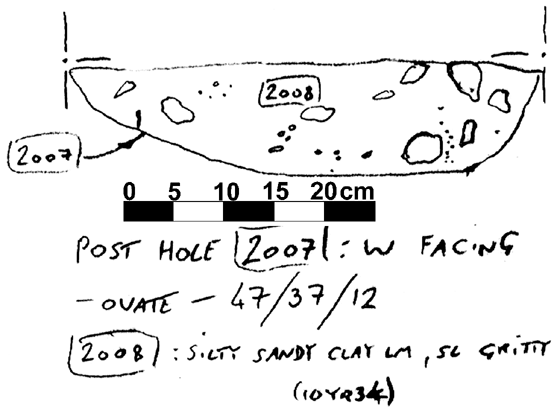 2008
2007
0 5 10 15 20 cm
POST HOLE 2007 : W FACING
- OVATE - 47/37/12
2008 : SILTY SANDY CLAY LM, SL GRITTY
(10YR3/4)